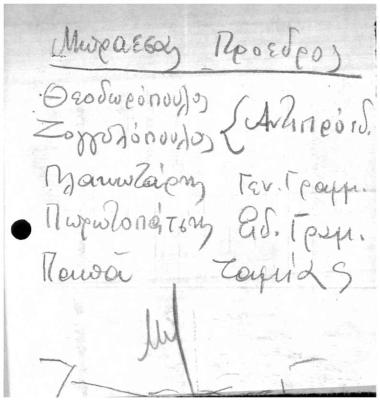 Μπραέσας Πρόεδρος
Θεοδωρόπουλος
Ζογγολόπουλος } Αντιπρόεδ.
Πλακωτάρης Γεν. Γραμμ.
Πωρωτοπάτσης Ειδ. Γραμ.
Παππά Ταμίας